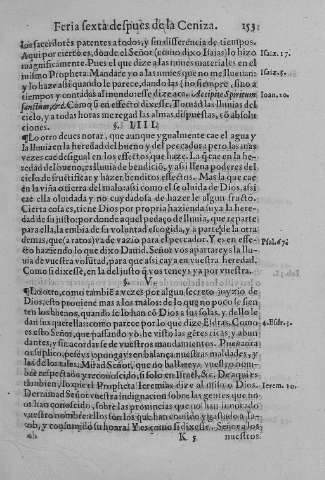 Feria sexta despues de la Ceniza. 153.
los sacerdotes patentes a todos, y sin disserencia de tiempos.
Aqui por cierto es, donde el Señor (como dixo Isaias) lo hizo Isaiæ. 17.
magnificamente. Pues el que dize a las nuues materiales en el
mismo Propheta. Mandare yo a las nuuies que no me llueuan: Isaiæ. 5.
y lo haze assi quando le parece, dando las (no siempre, sino a
tiempos y contadas al mundo esse dize aca. Accipite Spiritum Ioan. 20.
sanctum, &c. Como q̃ en effecto dixesse. Tomad las lluuias del
cielo, y a todas horas me regad las almas dispuestas, cõ absolu
ciones.
§. IIII.
¶Lo otro deues notar, que aunque ygualmente cae el agua y
la lluuia en la heredad del bueno y del peccador: pero las mas
vezes cae desigual en los effectos que haze. La q̃ cae en la he-
redad del bueno, es lluuia de bendiciõ, y assi llena poderes del
cielo de fructificar y hazer benditos effectos. Mas la que cae
en la viña o tierra del malo assi como el se oluida de Dios, assi
cae ella oluidada y no cuydadosa de hazer le algun fructo.
Cierta cosa es, tiene Dios por propria hazienda suya la here-
dad de su justo: por donde a aquel pedaço de lluuia, que reparte
para ella, la embia de su voluntad escogida, y a parte de la otra
demas, que (a ratos) va de vazio para el peccador. Y es en effe-
cto haziendo lo que dixo Dauid. Señor vos apartareys la llu- Psal. 67.
uia de vuestra volũtad, para que assi cayga en vuestra heredad.
Como si dixesse, en la del justo q̃ vos teneys ya por vuestra.
§. V.
¶Lo otro, como tambiẽ a vezes por algun secreto juyzio de
Dios, esto proiene mas a los malos: de lo que no poco se sien
ten los buenos, quando se lo han cõ Dios a sus solas, y dello le
dan sus querellas como parece por lo que dize Esdras. Como 4. Esdr. 3.
es esto Señor, que passando yo, he visto las gentes ricas, y abun
dantes, y sin acordarse de vuestros mandamientos. Pues aora
os suplico, peseys y pongays en balança nuestras maldades, y
las de los tales. Mirad Señor, que no hallareys vuestro nom-
bre respectado y reconocido, si solo en Israel, &c. De aqui es
tambien, lo que el Propheta Ieremias dize al mismo Dios. Ierem. 10.
Derramad Señor vuestra indignacion sobre las gentes que no
os han conocido, sobre las prouincias que no han inuocado
vuestro nombre: ellos son los que han comido y gastado a Ia-
cob, y consumido su honra. Y es como si dixesse. Señor a los
K 5 nuestros